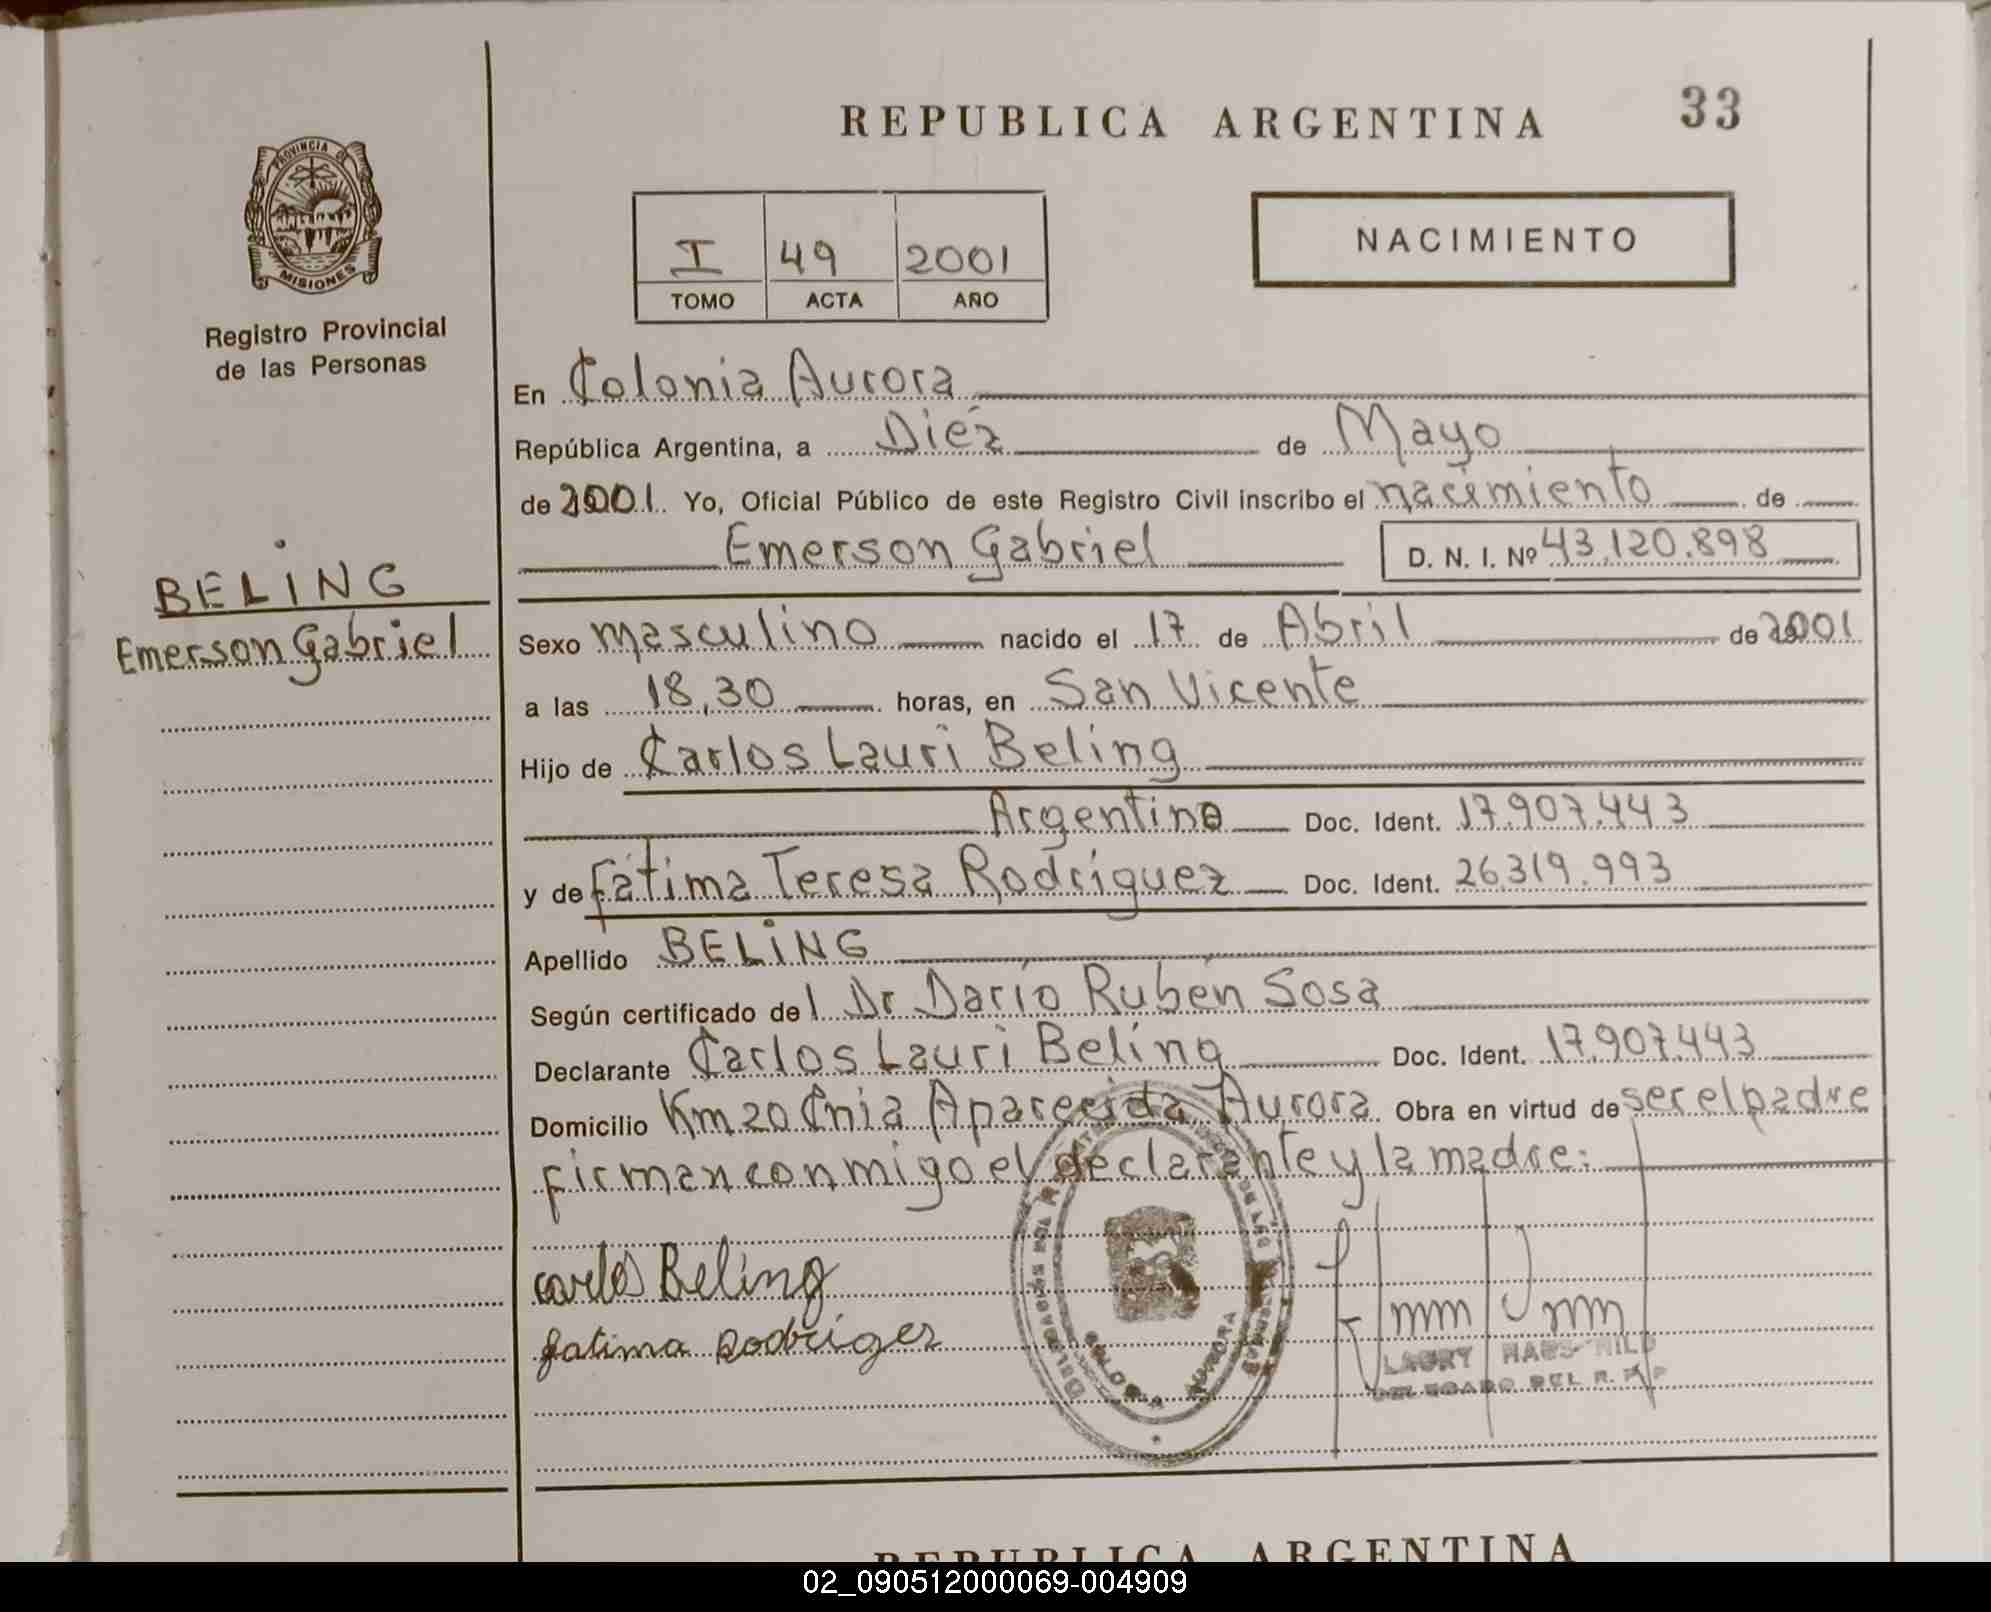 REPUBLICA ARGENTINA 33
PROVINCIA DE
MISIONES
Registro Provincial
de las Personas
I 49 2001
TOMO ACTA AÑO
NACIMIENTO
En Colonia Aurora
República Argentina, a Diéz de Mayo
de 2001. Yo, Oficial Público de este Registro Civil inscribo el nacimiento de
Emerson Gabriel D. N. I. Nº 43.120.898
BELING
Emerson Gabriel
Sexo masculino nacido el 17 de Abril de 2001
a las 18,30 horas, en San Vicente
Hijo de Carlos Lauri Beling
Argentino Doc. Ident. 17.907.443
y de Fátima Teresa Rodríguez Doc. Ident. 26.319.993
Apellido BELING
Según certificado del Dr Darío Rubén Sosa
Declarante Carlos Lauri Beling Doc. Ident. 17.907.443
Domicilio Km 20 Cnia Aparecida Aurora Obra en virtud de ser el padre
firman conmigo el declarante y la madre:
carlos Beling
fatima Rodriger
LAURY
DELEGADO DEL R. P. P
AURORA
REPUBLICA ARGENTINA
02_090512000069-004909